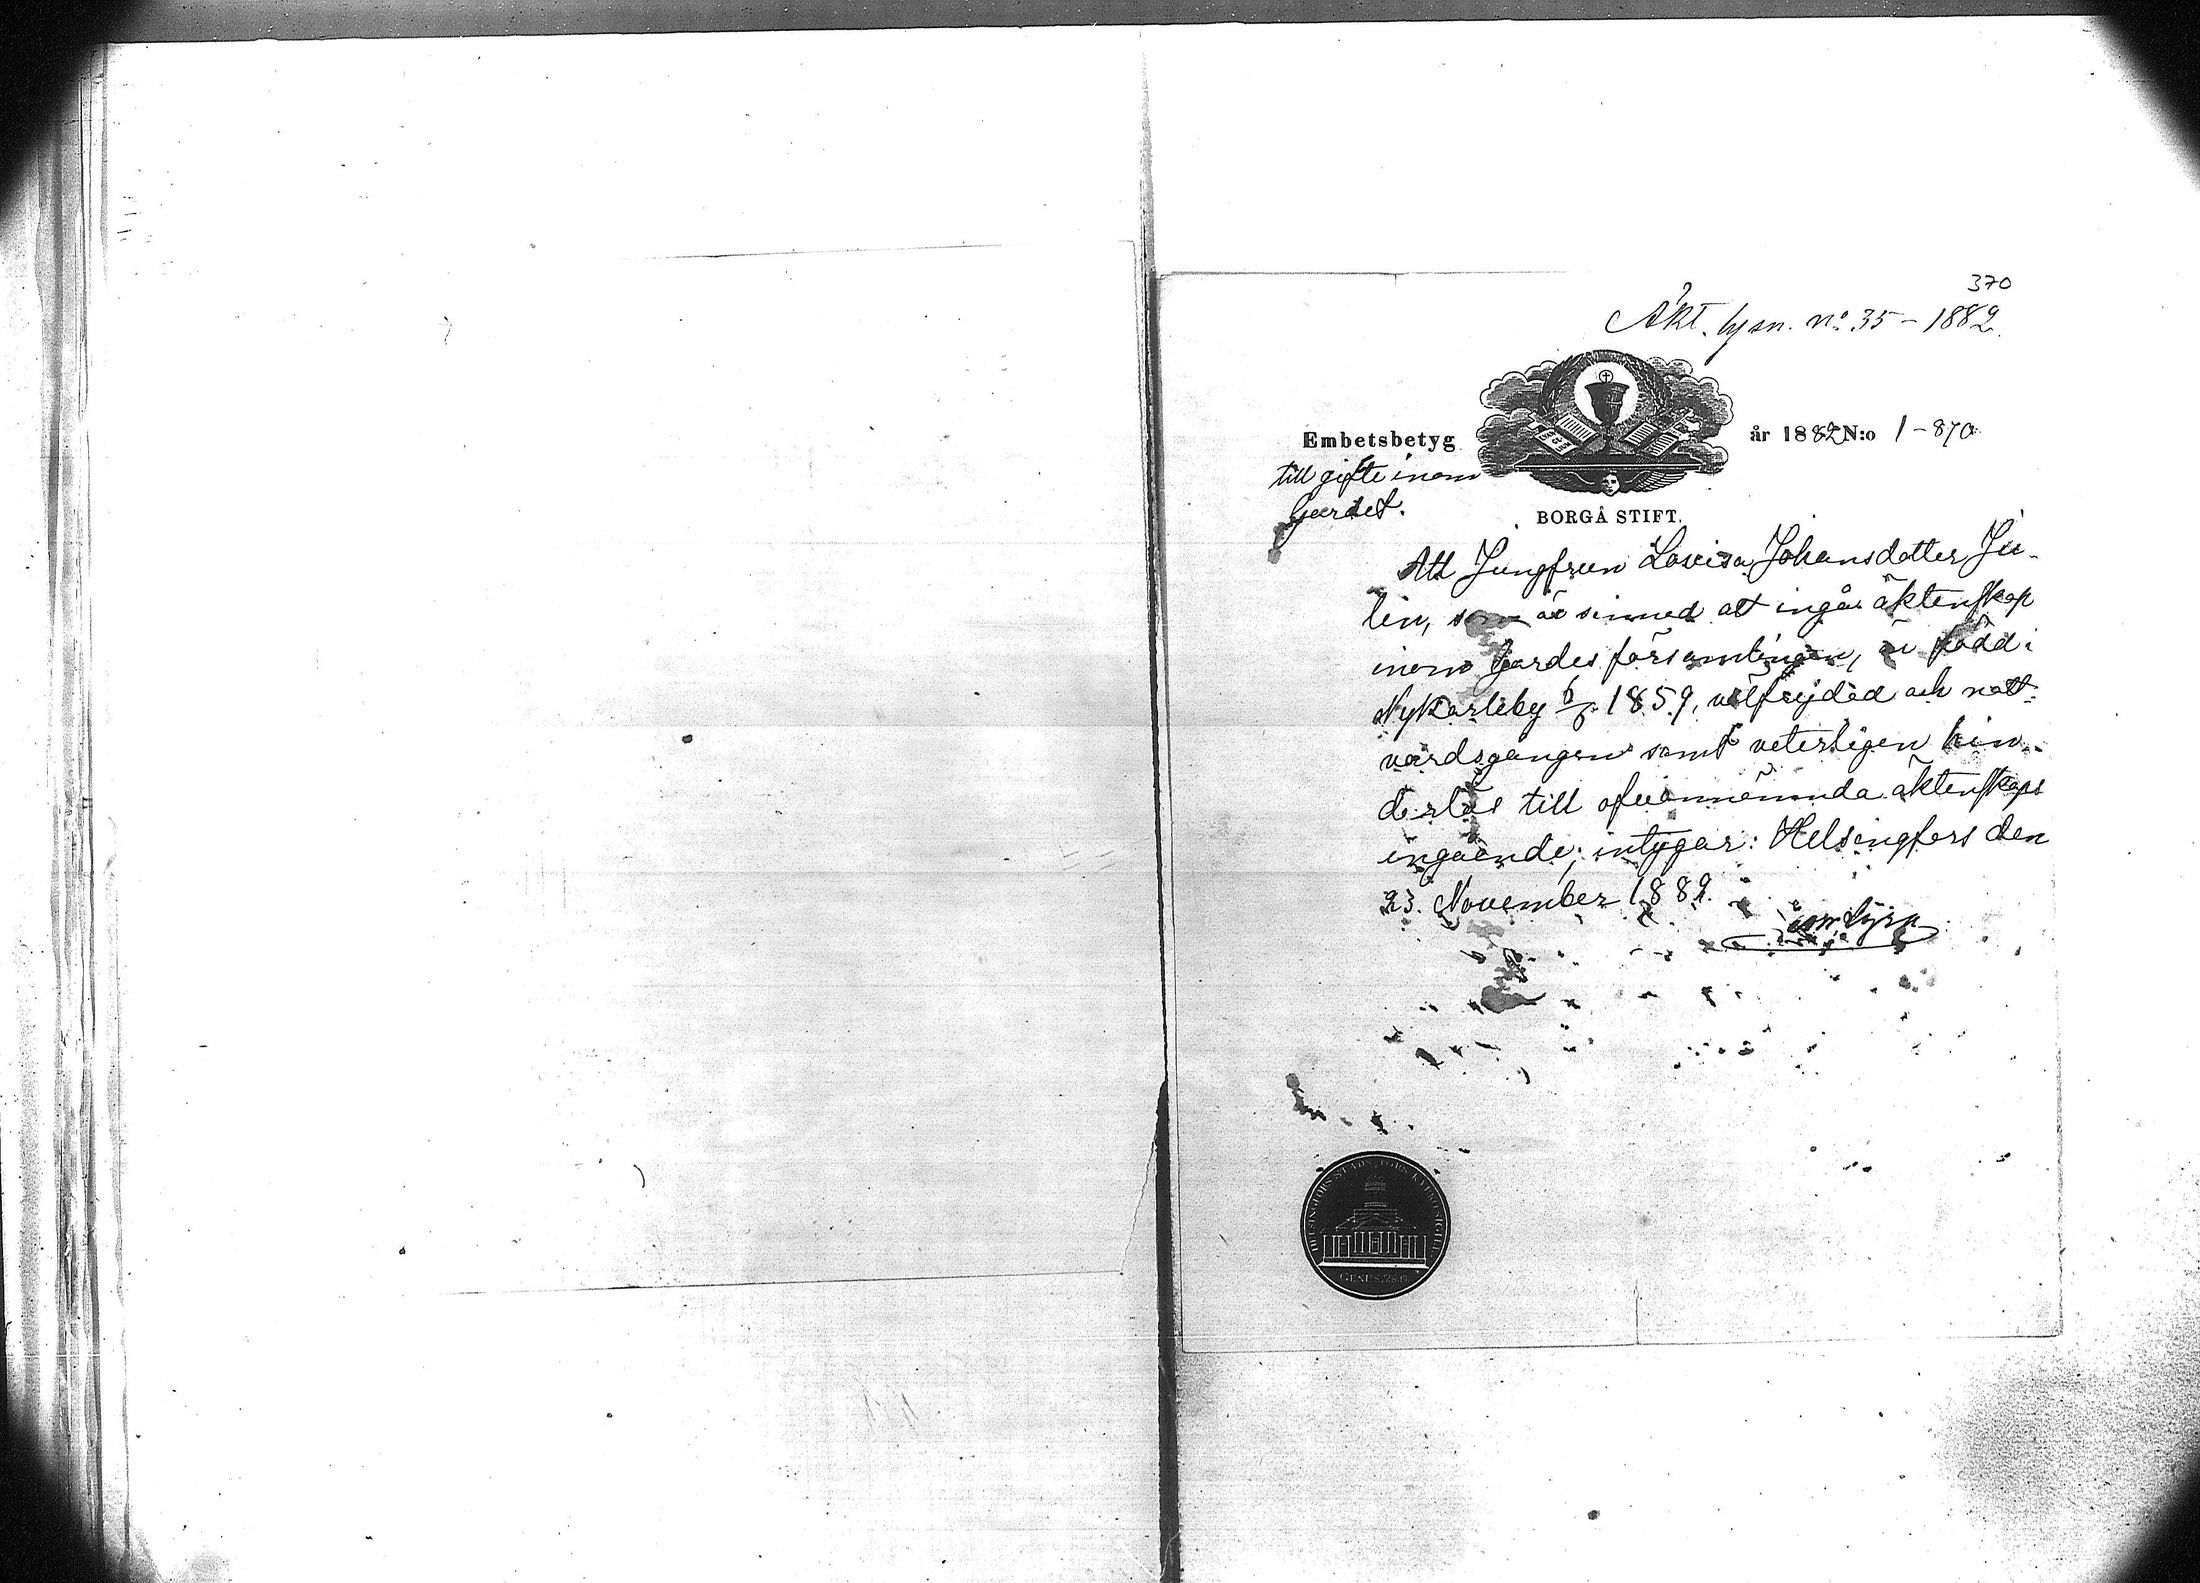 370
Äkt. lysn. no 35 - 1882.
Embetsbetyg år 1882 N:o 1-870.
till gifte inom
Gardet.
BORGÅ STIFT.
Att Jungfrun Lovisa Johansdotter Ju-
lin, som är sinnad att ingå äktenskap
inom Gardes församlingen, är född i
Nykarleby 6/6 1859, välfrejdad och natt-
vardsgången samt veterligen hin-
derlös till ofvannämnda äktenskaps
ingående; intygar: Helsingfors den
23. November 1882.
HELSINGFORS STADS